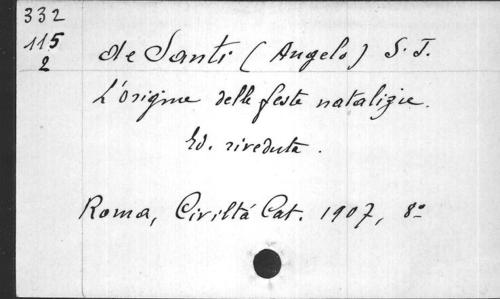 332
115
2
de Santi (Angelo) S. J.
L'origine delle feste natalizie.
Ed. riveduta.
Roma, Civiltá Cat. 1907, 8º